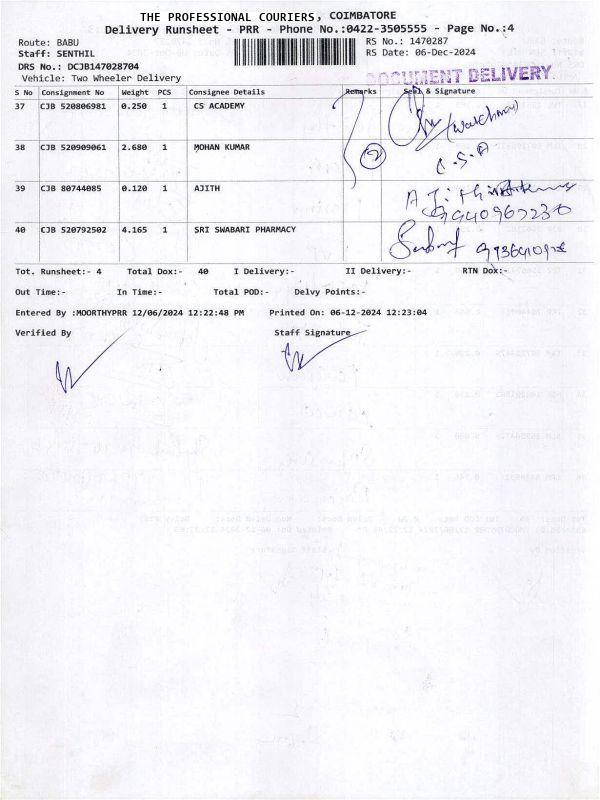 THE PROFESSIONAL COURIERS, COIMBATORE
Delivery Runsheet - PRR - Phone No.:0422-3505555 - Page No.:4
Route: BABU
RS No.: 1470287
Staff: SENTHIL
RS Date: 06-Dec-2024
DRS No.: DCJB147028704
Vehicle: Two Wheeler Delivery
DOCUMENT DELIVERY
S No Consignment No Weight PCS Consignee Details Remarks Seal & Signature
37 CJB 520806981 0.250 1 CS ACADEMY
(watchman)
38 CJB 520909061 2.680 1 MOHAN KUMAR
2
C.S.A
39 CJB 80744085 0.120 1 AJITH
40 CJB 520792502 4.165 1 SRI SWABARI PHARMACY
Tot. Runsheet:- 4 Total Dox:- 40 I Delivery:- II Delivery:- RTN Dox:-
Out Time:- In Time:- Total POD:- Delvy Points:-
Entered By :MOORTHYPRR 12/06/2024 12:22:48 PM Printed On: 06-12-2024 12:23:04
Verified By Staff Signature